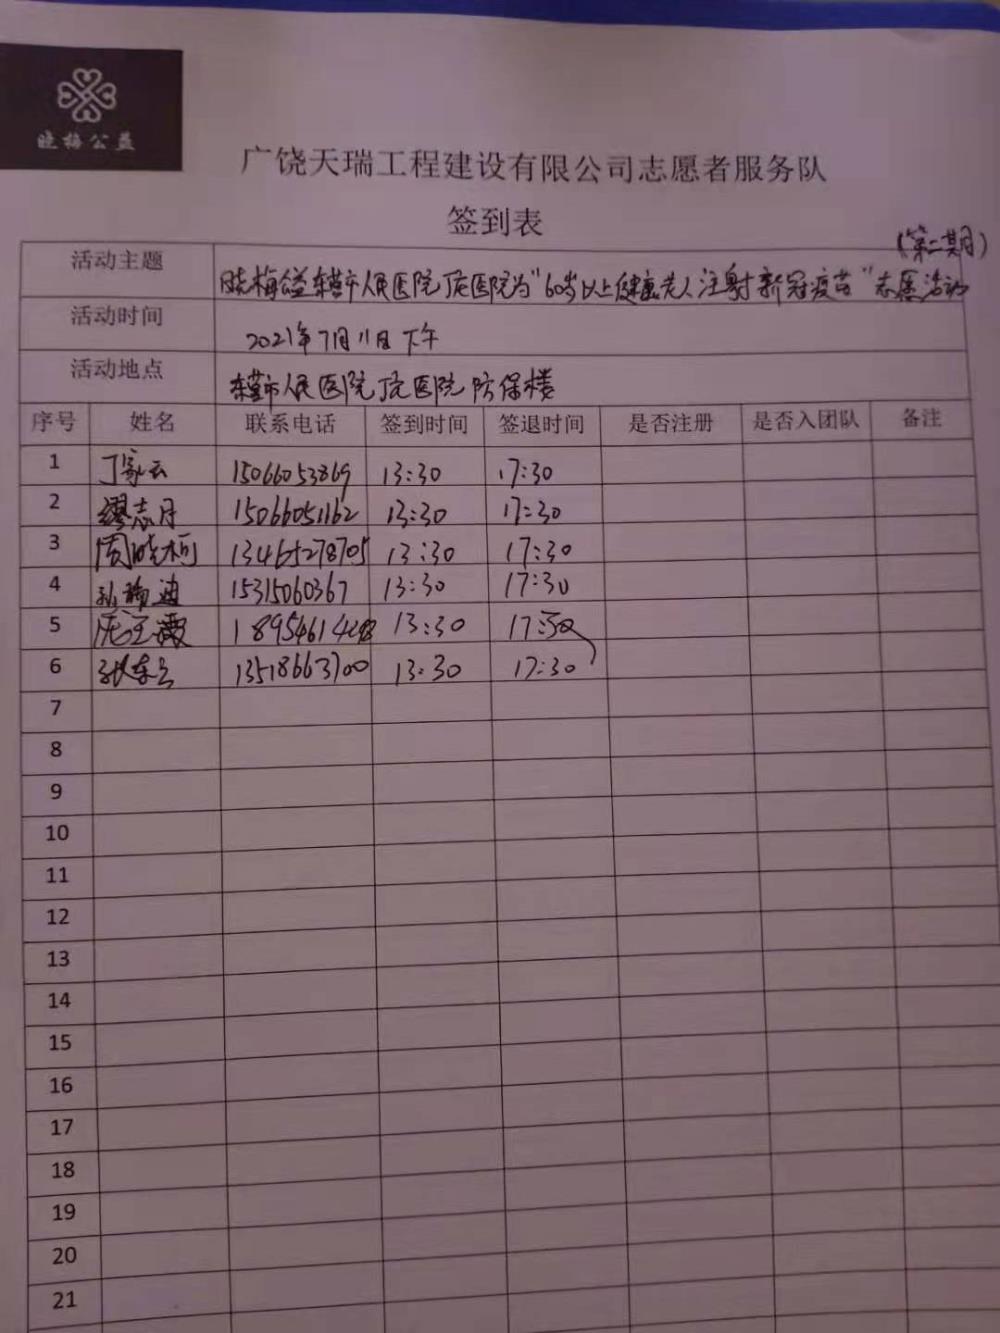 晓梅公益
广饶天瑞工程建设有限公司志愿者服务队
签到表
(第二期)
活动主题 晓梅公益东营市人民医院 医院为"60岁以上健康老人注射新冠疫苗"志愿活动
活动时间 2021年7月11日下午
活动地点 东营市人民医院 医院防保楼
序号 姓名 联系电话 签到时间 签退时间 是否注册 是否入团队 备注
1 丁家云 15066053869 13:30 17:30
2 缪志月 15066051162 13:30 17:30
3 周晓柯 13465278705 13:30 17:30
4 15315060367 13:30 17:30
5 13:30
6 张东云 13518663700 13:30 17:30
7
8
9
10
11
12
13
14
15
16
17
18
19
20
21